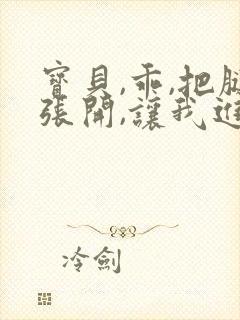 寶貝,乖,把
張開,讓我進
冷劍